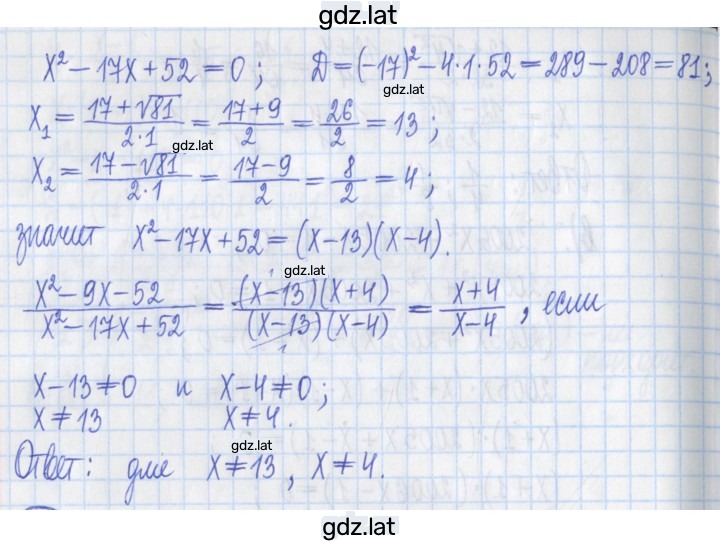 gdz.lat
x² − 17x + 52 = 0; Д = (−17)² − 4·1·52 = 289 − 208 = 81;
x₁ = (17 + √81)/(2·1) = (17 + 9)/2 = 26/2 = 13;
gdz.lat
x₂ = (17 − √81)/(2·1) = (17 − 9)/2 = 8/2 = 4;
значит x² − 17x + 52 = (x − 13)(x − 4).
gdz.lat
(x² − 9x − 52)/(x² − 17x + 52) = (x − 13)(x + 4)/(x − 13)(x − 4) = (x + 4)/(x − 4), если
x − 13 ≠ 0 и x − 4 ≠ 0;
x ≠ 13 x ≠ 4.
gdz.lat
Ответ: для x ≠ 13, x ≠ 4.
gdz.lat